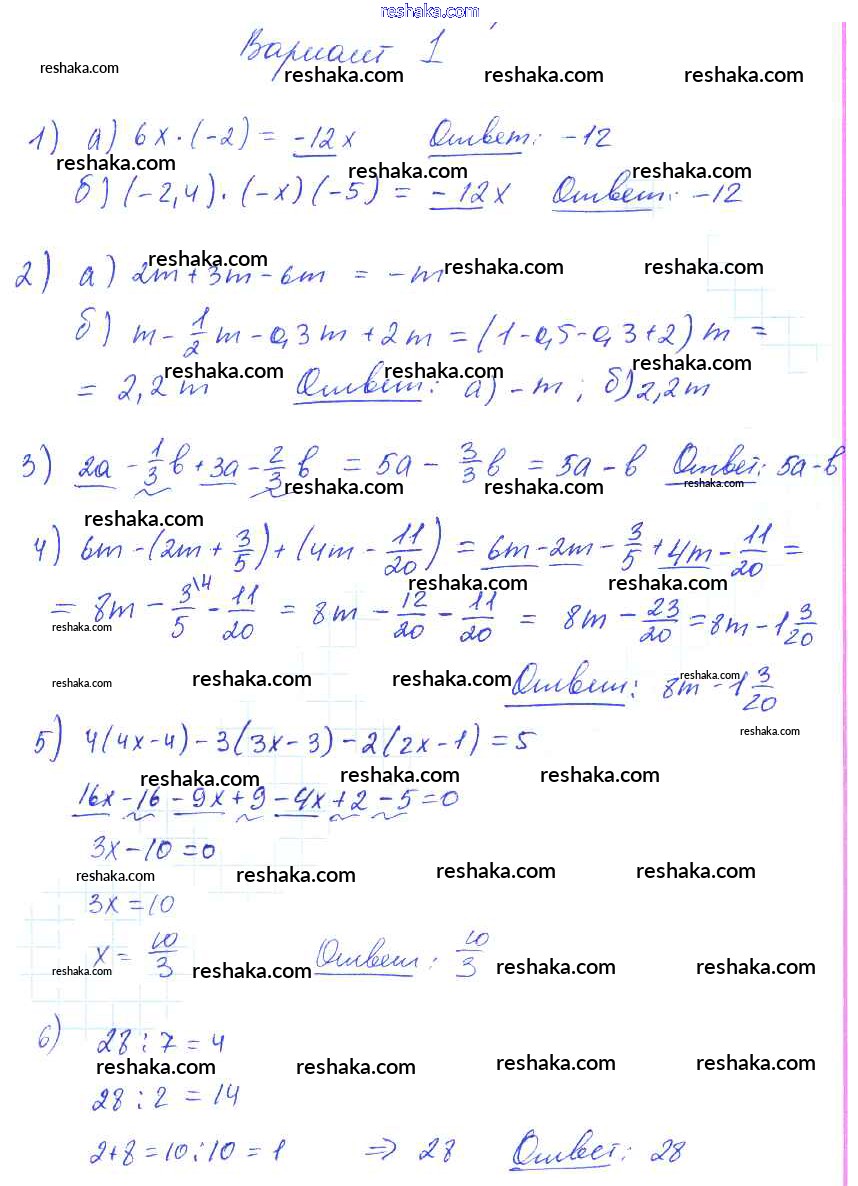 reshaka.com
Вариант 1
reshaka.com reshaka.com reshaka.com reshaka.com
1) а) 6x·(-2) = -12x Ответ: -12
reshaka.com reshaka.com reshaka.com
б) (-2,4)·(-x)(-5) = -12x Ответ: -12
reshaka.com reshaka.com reshaka.com
2) а) 2m+3m-6m = -m
б) m - 1/2 m - 0,3m + 2m = (1-0,5-0,3+2)m =
reshaka.com reshaka.com reshaka.com
= 2,2m Ответ: а) -m; б) 2,2m
3) 2a - 1/3 b + 3a - 2/3 b = 5a - 3/3 b = 5a - b Ответ: 5a-b
reshaka.com reshaka.com reshaka.com
reshaka.com
4) 6m-(2m+3/5)+(4m-11/20) = 6m-2m-3/5+4m-11/20 =
reshaka.com reshaka.com
= 8m - 3\4/5 - 11/20 = 8m - 12/20 - 11/20 = 8m - 23/20 = 8m - 1 3/20
reshaka.com
reshaka.com reshaka.com reshaka.com reshaka.com
Ответ: 8m - 1 3/20
reshaka.com
5) 4(4x-4)-3(3x-3)-2(2x-1)=5
reshaka.com reshaka.com reshaka.com
16x-16-9x+9-4x+2-5=0
3x-10=0
reshaka.com reshaka.com reshaka.com reshaka.com
3x=10
x = 10/3 Ответ: 10/3
reshaka.com reshaka.com reshaka.com reshaka.com
6) 28:7=4
reshaka.com reshaka.com reshaka.com reshaka.com
28:2=14
2+8=10:10=1 ⇒ 28 Ответ: 28